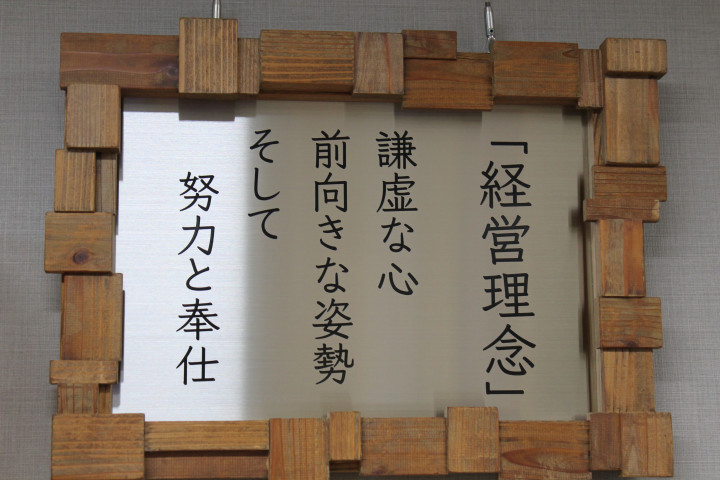 「経営理念」
謙虚な心
前向きな姿勢
そして
努力と奉仕